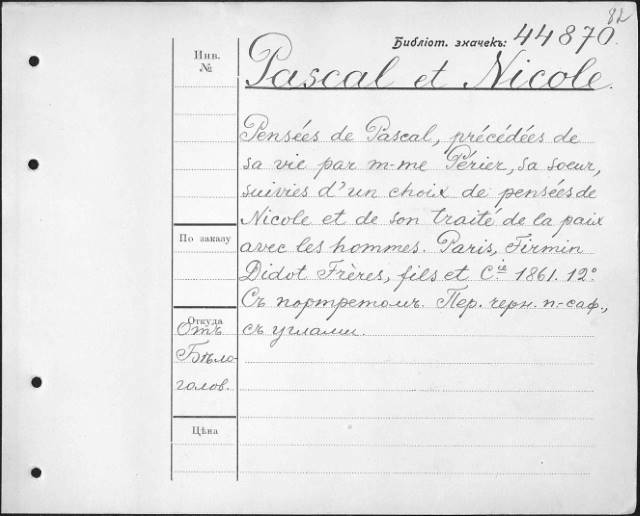 82
Библіот. значекъ: 44870.
Инв.
№
Pascal et Nicole.
Pensées de Pascal, précédées de
sa vie par m-me Périer, sa soeur,
suivies d'un choix de pensées de
Nicole et de son traité de la paix
По заказу
avec les hommes. Paris, Firmin
Didot Frères, fils et Cie 1861. 12°
Съ портретомъ. Пер. черн. п-саф.,
Откуда
Отъ
съ углами.
Бѣло-
голов.
Цѣна